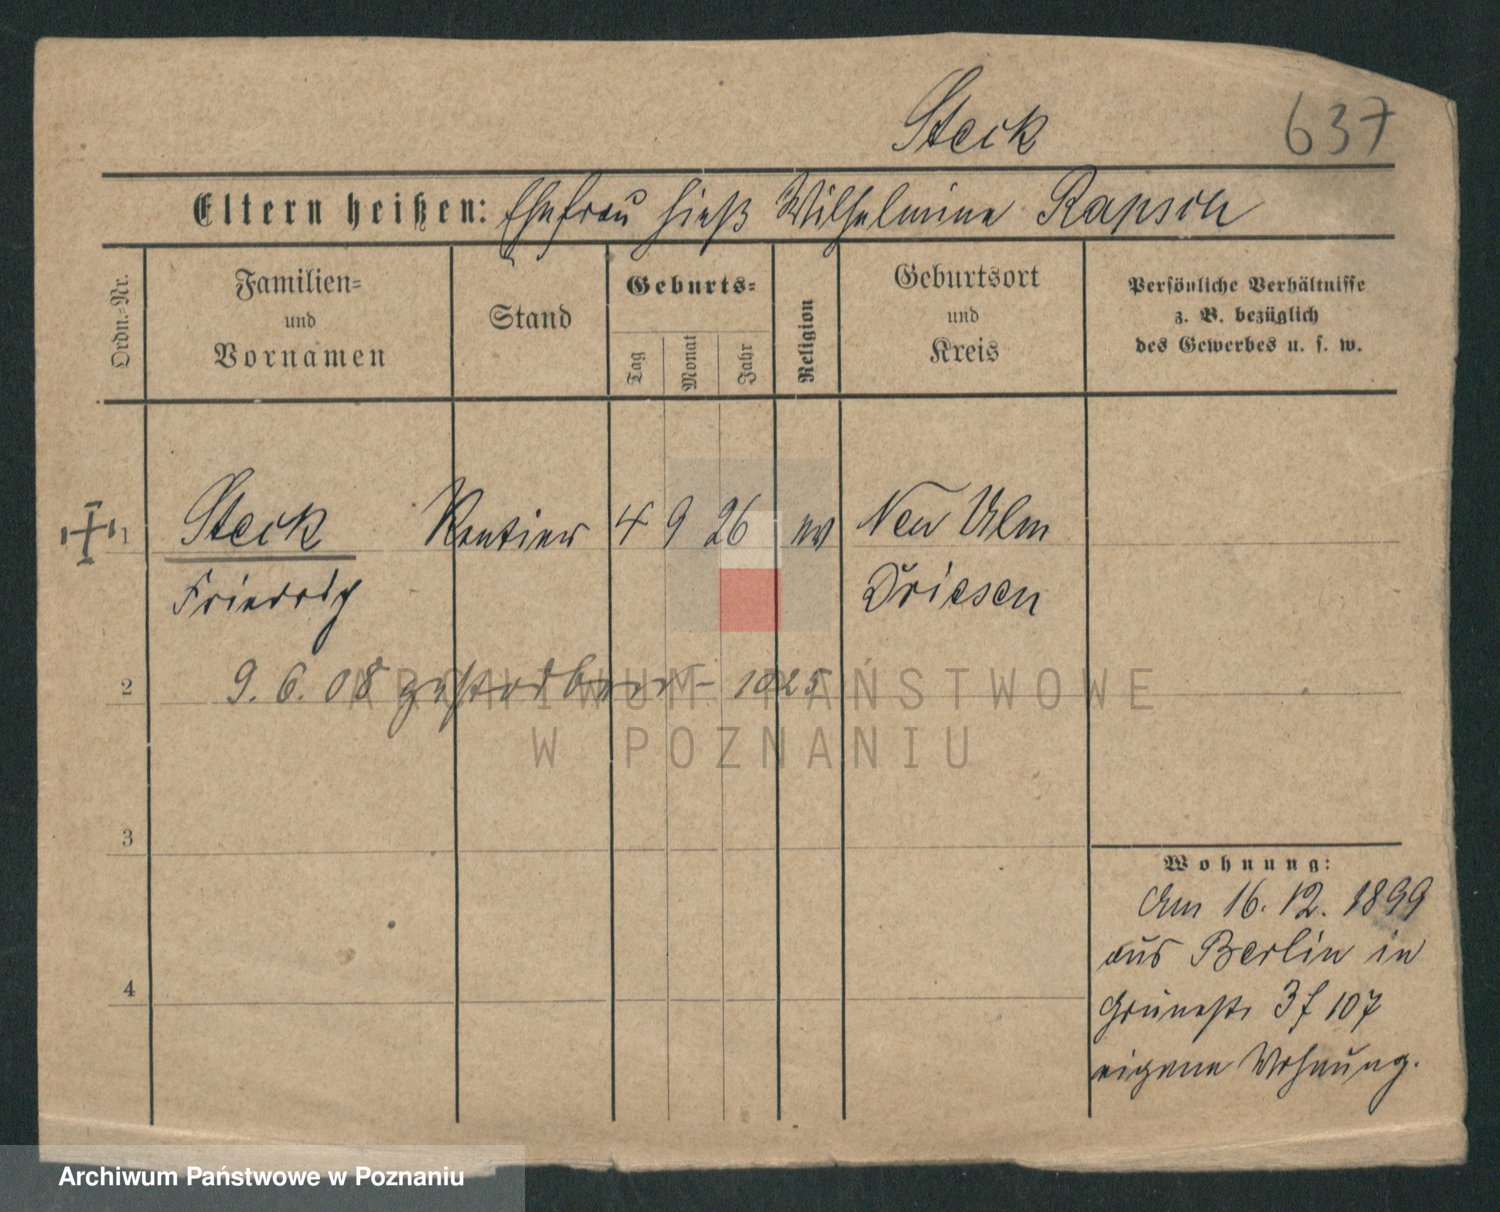 Steck 637
Eltern heißen: Ehefrau hieß Wilhelmine Rapsch
Ordn.=Nr.
Familien=
und
Vornamen
Stand
Geburts=
Tag
Monat
Jahr
Religion
Geburtsort
und
Kreis
Persönliche Verhältnisse
z. B. bezüglich
des Gewerbes u. s. w.
1 Steck Rentier 4 9 26 ev Neu Ulm
Friedrich Driesen
2 9. 6. 08 gestorben – 1025
3
4
Wohnung:
Am 16. 12. 1899
aus Berlin in
Grünestr 3 f 107
eigene Wohnung.
ARCHIWUM PAŃSTWOWE
W POZNANIU
Archiwum Państwowe w Poznaniu